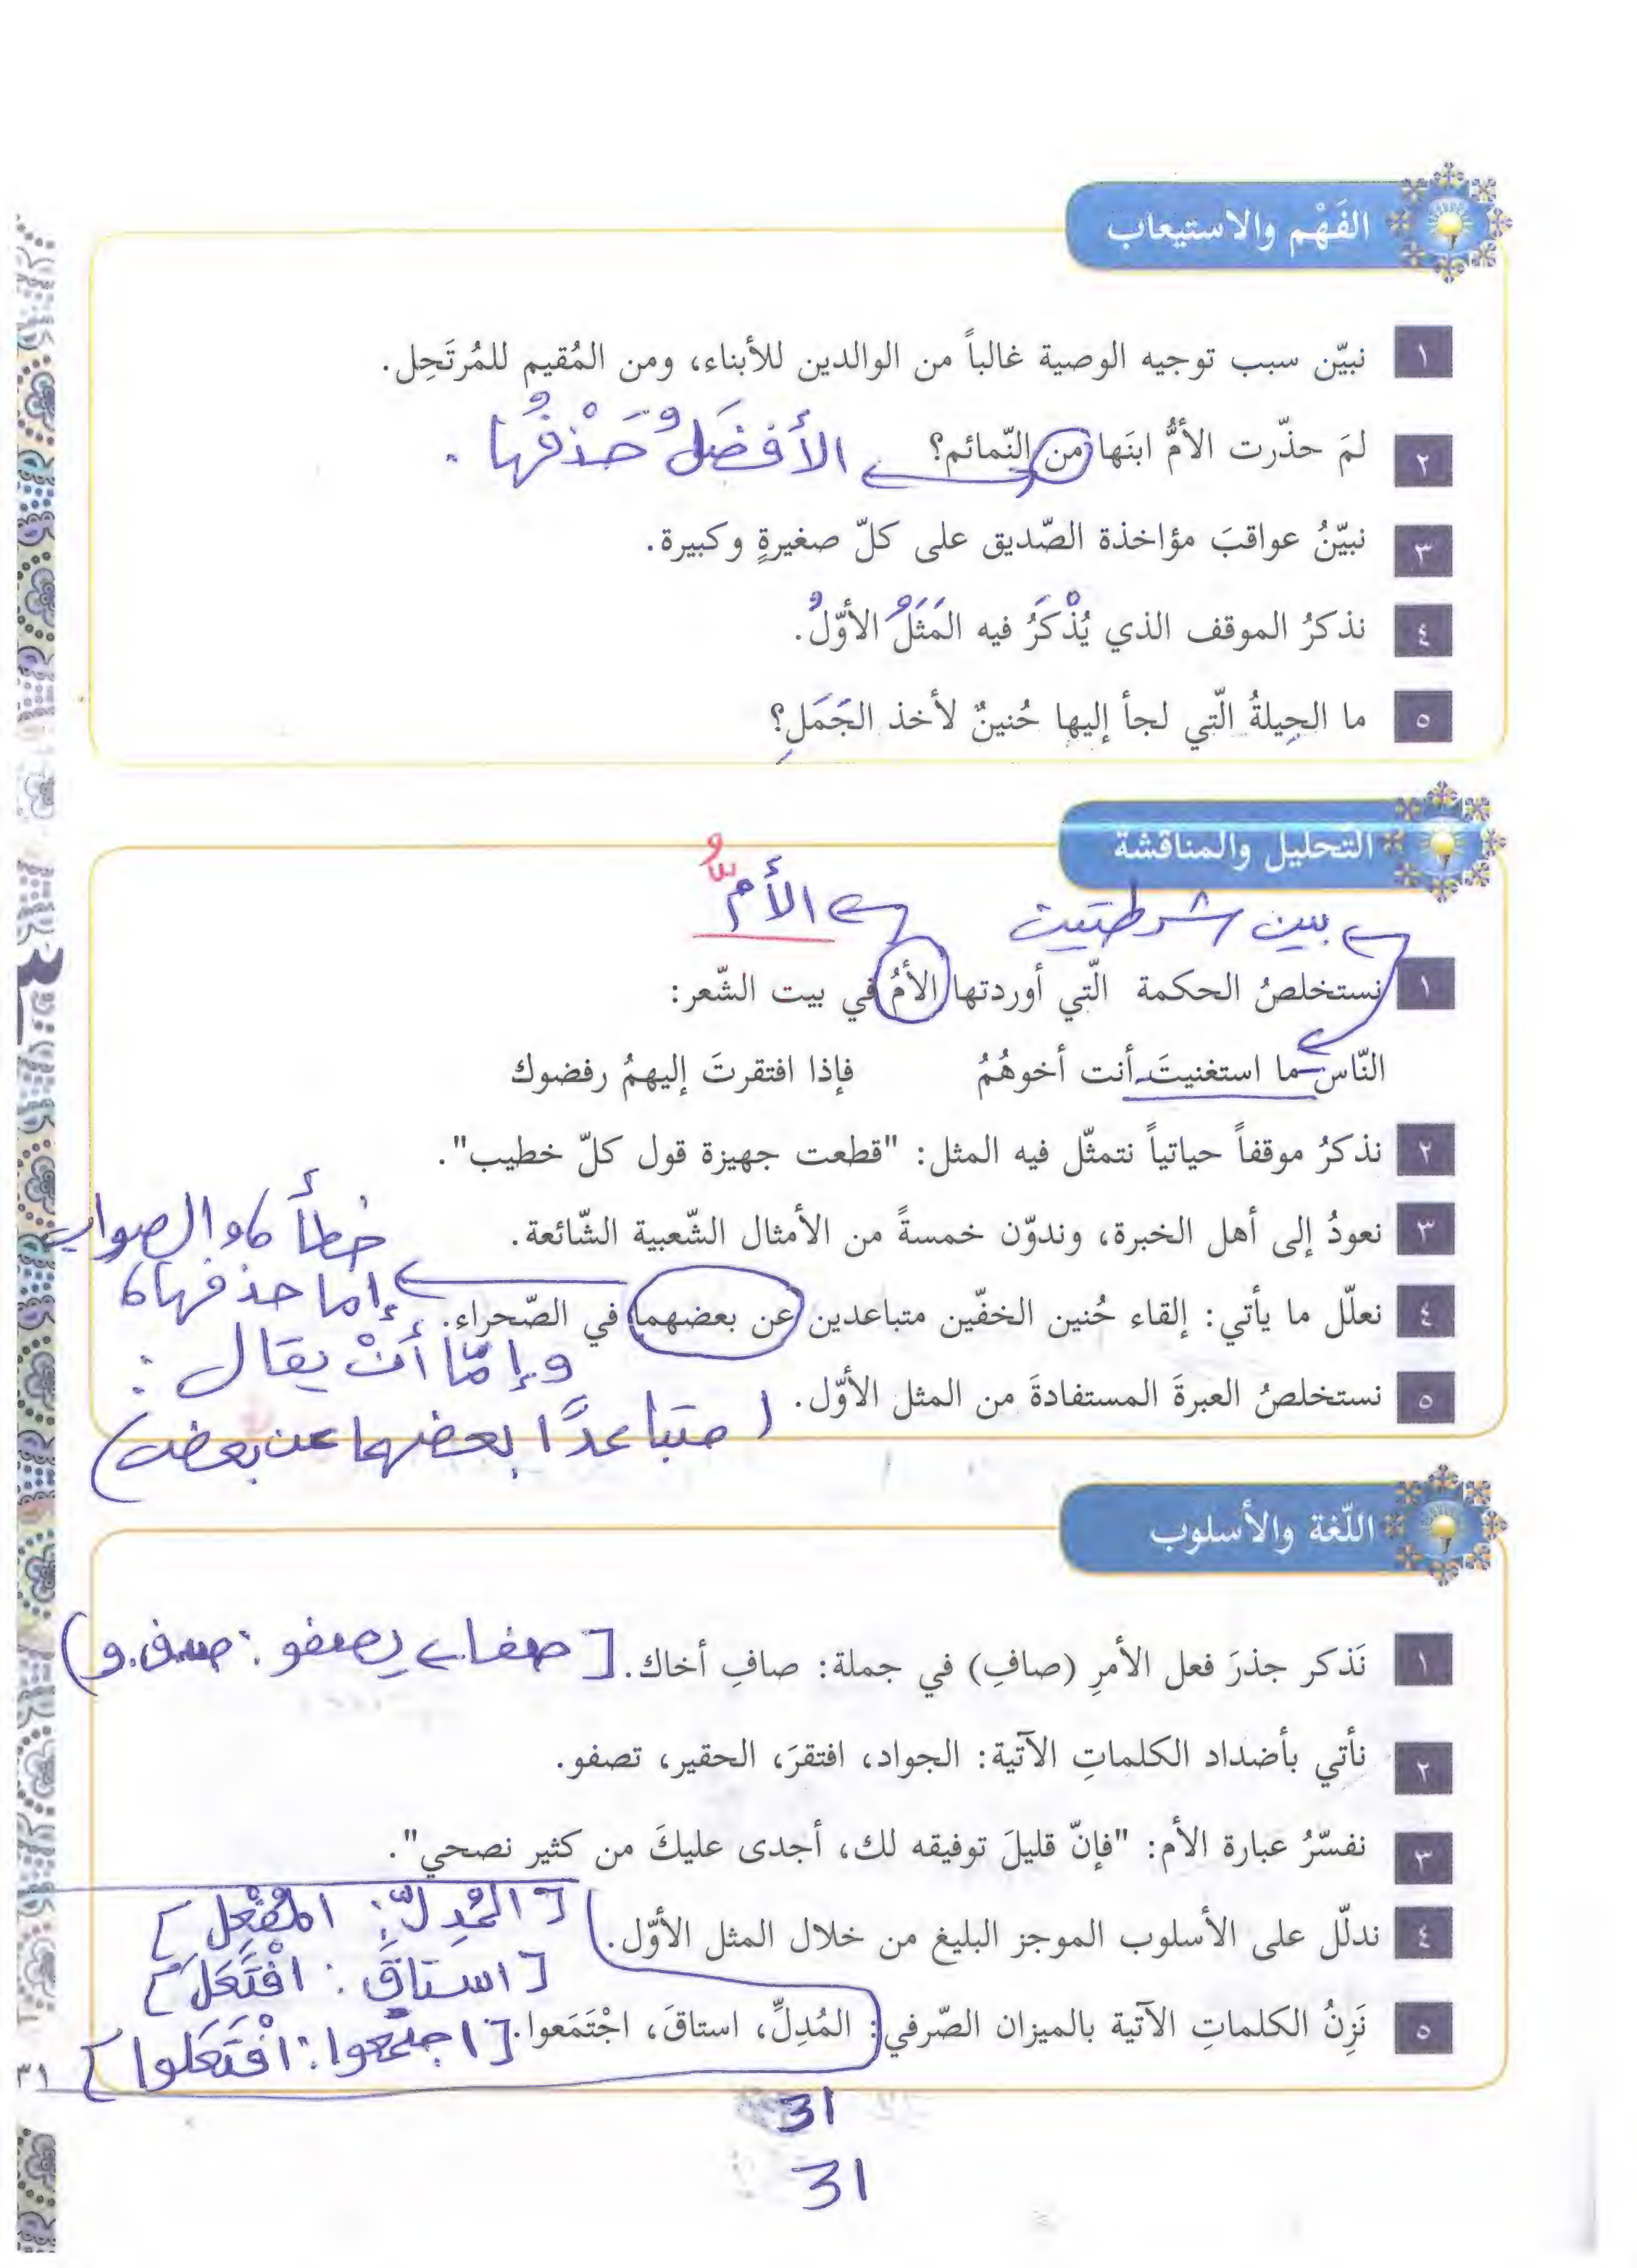 الفَهْم والاستيعاب
١ نبيّن سبب توجيه الوصية غالباً من الوالدين للأبناء، ومن المُقيم للمُرتَحِل.
٢ لمَ حذّرت الأمُّ ابنَها من النّمائم؟ الأفضَلُ حَذْفُها .
٣ نبيّنُ عواقبَ مؤاخذة الصّديق على كلّ صغيرةٍ وكبيرة.
٤ نذكرُ الموقف الذي يُذْكَرُ فيه المَثَلُ الأوّلُ.
٥ ما الحِيلةُ الّتي لجأ إليها حُنينٌ لأخذ الجَمَلِ؟
التّحليل والمناقشة
بين شرطتين الأمُّ
١ نستخلصُ الحكمة الّتي أوردتها الأمُ في بيت الشّعر:
النّاس ما استغنيتَ أنت أخوهُمُ فإذا افتقرتَ إليهمُ رفضوك
٢ نذكرُ موقفاً حياتياً نتمثّل فيه المثل: "قطعت جهيزة قول كلّ خطيب".
٣ نعودُ إلى أهل الخبرة، وندوّن خمسةً من الأمثال الشّعبية الشّائعة.
خطأ، والصواب
إما حذفها،
٤ نعلّل ما يأتي: إلقاء حُنين الخفّين متباعدين عن بعضهما في الصّحراء.
وإمّا أنْ يقال :
٥ نستخلصُ العبرةَ المستفادةَ من المثل الأوّل.
(متباعدًا بعضهما عن بعض)
اللّغة والأسلوب
١ نَذكر جذرَ فعل الأمرِ (صافِ) في جملة: صافِ أخاك. [صفا يصفو: ص.ف.و)
٢ نأتي بأضداد الكلماتِ الآتية: الجواد، افتقرَ، الحقير، تصفو.
٣ نفسّرُ عبارة الأم: "فإنّ قليلَ توفيقه لك، أجدى عليكَ من كثير نصحي".
[المُدِلّ: المُفْعِل]
٤ ندلّل على الأسلوب الموجز البليغ من خلال المثل الأوّل.
[استاقَ: افْتَعَلَ]
٥ نَزِنُ الكلماتِ الآتية بالميزان الصّرفي: المُدِلِّ، استاقَ، اجْتَمَعوا. [اجتمعوا: افْتَعَلوا]
٣١
31
31